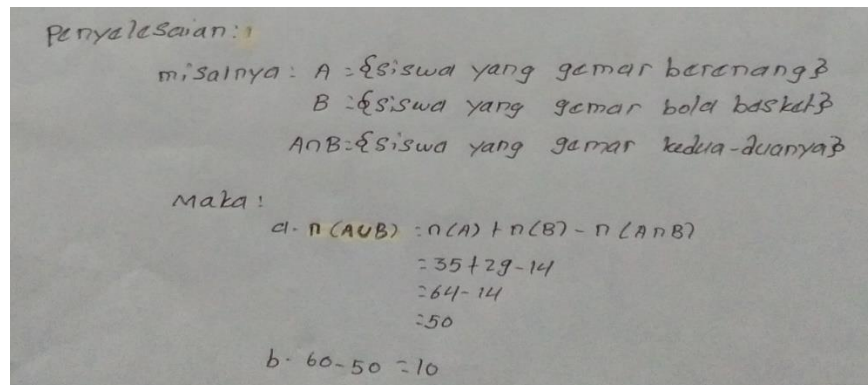 Penyelesaian:
misalnya: A = {siswa yang gemar berenang}
B = {siswa yang gemar bola basket}
A∩B = {siswa yang gemar kedua-duanya}
Maka:
a. n(A∪B) = n(A) + n(B) - n(A∩B)
= 35 + 29 - 14
= 64 - 14
= 50
b. 60 - 50 = 10